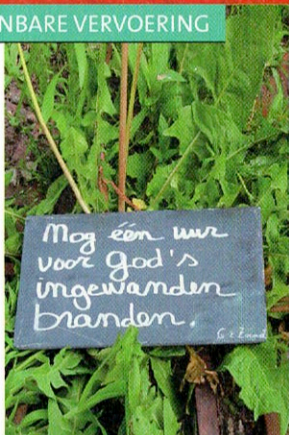 NBARE VERVOERING
Mog één uur
voor god's
ingewanden
branden.